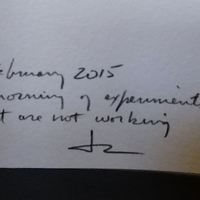 ebruary 2015
morning of experiment
t are not working